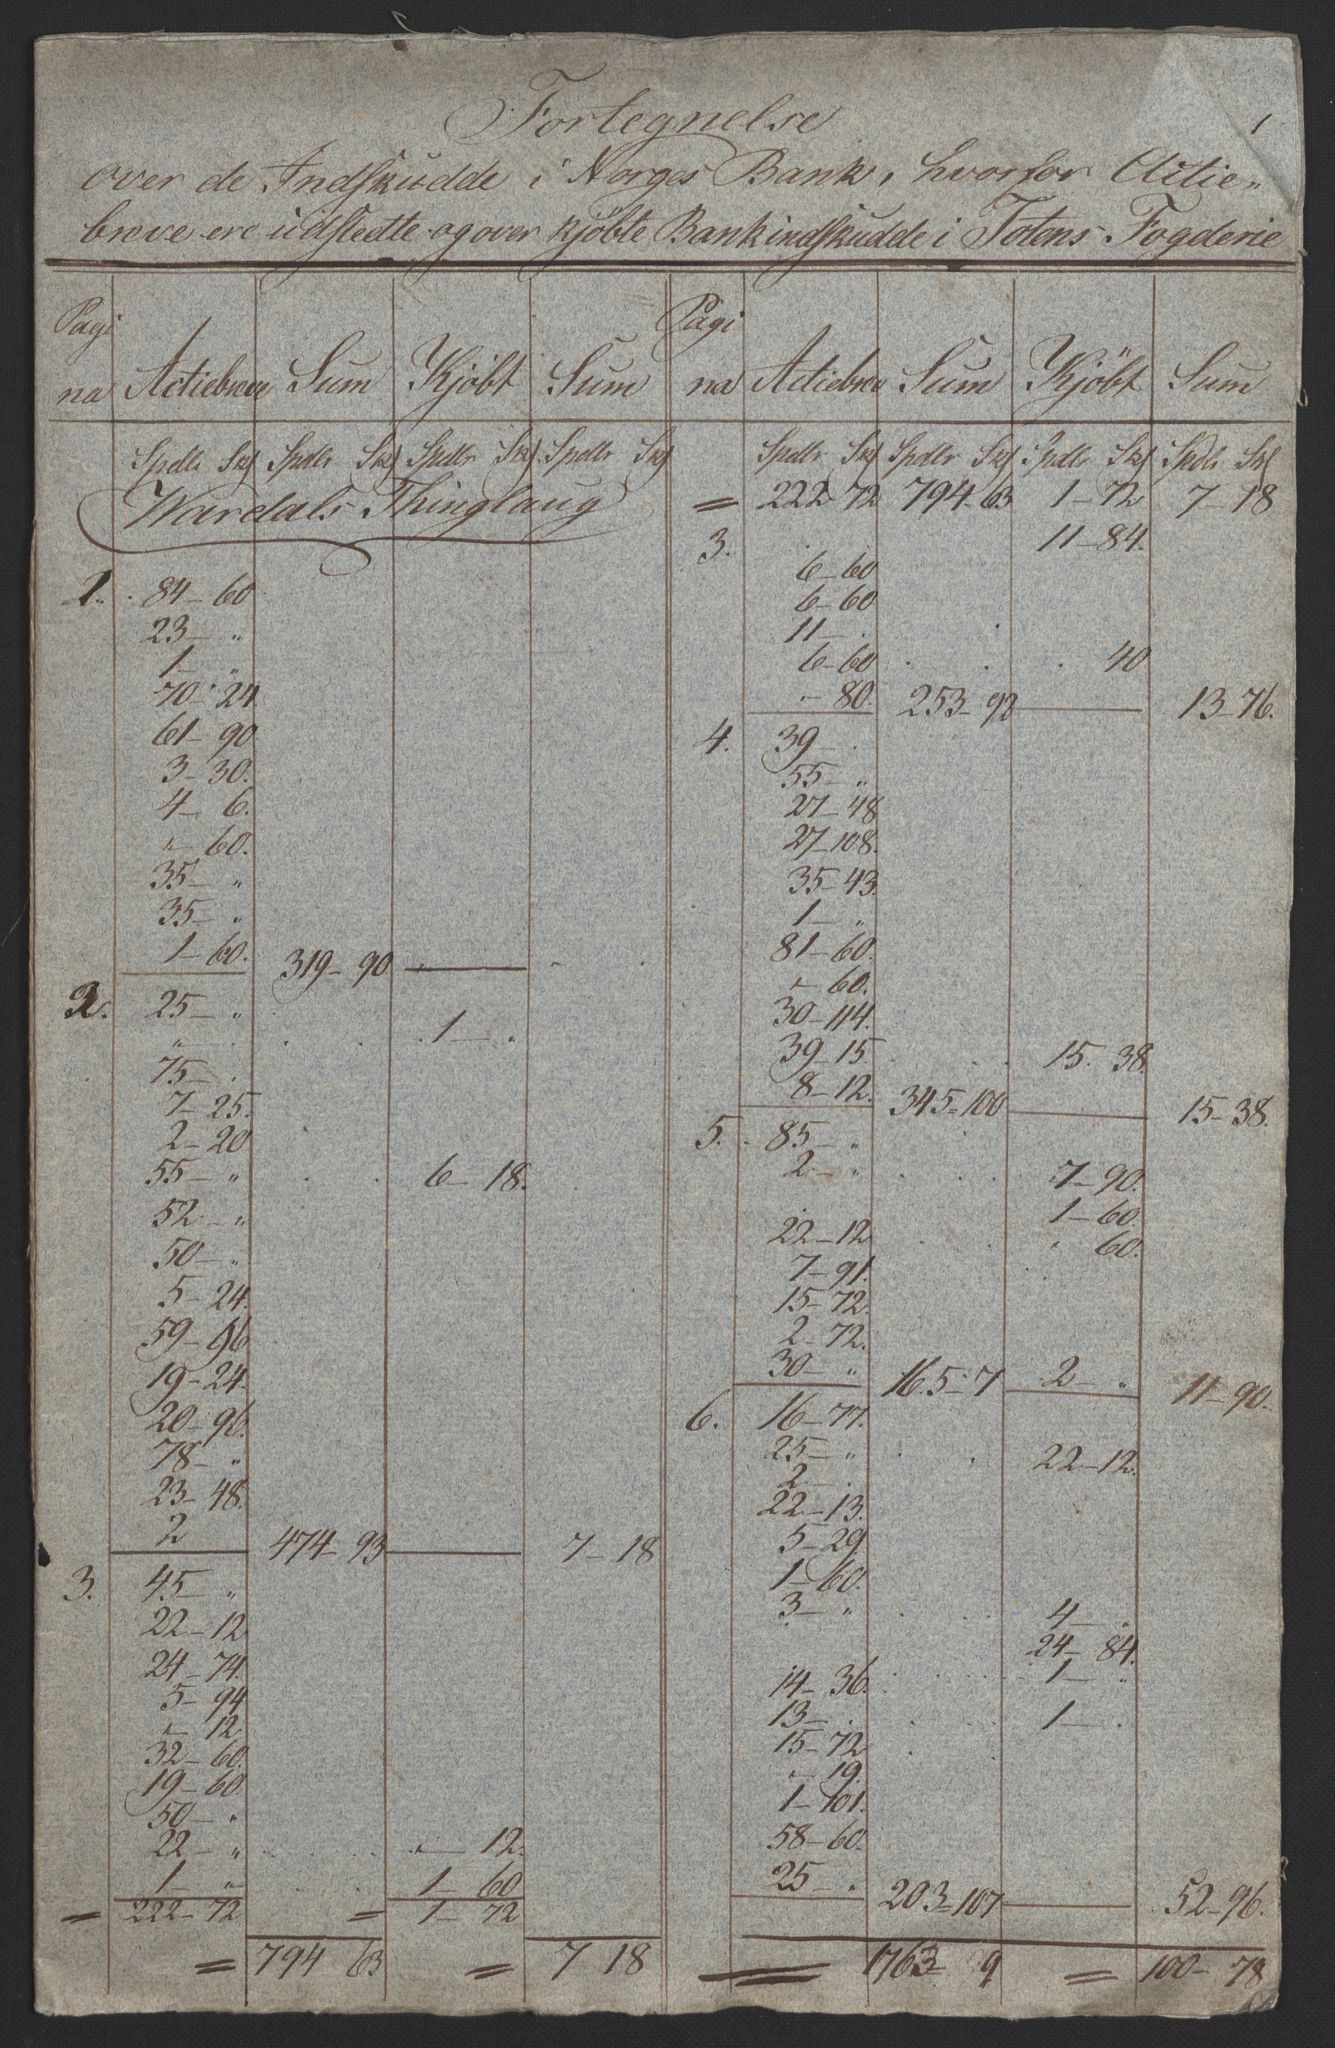 1
Fortegnelse
over de Indskudde i Norges Bank, hvorfor Actie-
breve ere udstedte og over kjöbte Bankindskudde i Totens Fogderie
Pagi
na Actiebreve Sum Kjöbt Sum
Spdlr Sk/ Spdlr Sk/ Spdlr Sk/ Spdlr Sk/
Wardals Thinglaug
1. 84-60
23- "
1- "
70-24.
61-90
3-30.
4-6.
"-60.
35- "
35- "
1-60. 319-90
2. 25- "
" 1-.
75-.
7-25.
2-20
55- " 6-18.
52- "
50- "
5-24.
59-96
19-24.
20-96.
78- "
23-48.
2 474-93 7-18
3. 45- "
22-12
24-74.
5-94
"-12
32-60.
19-60.
50- "
22- " "-12.
1- " 1-60
= 222-72 = 1-72
= 794 63 = 7 18
Pagi
na Actiebreve Sum Kjöbt Sum
Spdlr Sk/ Spdlr Sk/ Spdlr Sk/ Spdlr Sk/
= 222-72 794-63 1-72 7-18
3. 11-84.
6-60
6-60
11-.
6-60 40
"-80. 253-92 13-76.
4. 39-.
55- "
27-48
27-108.
35-43.
1- "
81-60.
"-60.
30-114.
39-15 15. 38.
8-12. 345-100 15-38.
5. 85- "
2- " 7-90.
1-60.
22-12 " 60.
7-91.
15-72.
2-72.
30- " 165-7 2- " 11-90.
6. 16-77.
25- " 22-12.
2-.
22-13.
5-29
1-60.
3- " 4-.
24-84.
14-36. 1- "
13-. 1-.
15-72
"-19.
1-101.
58-60.
25- " 203-107 52-96.
= 1763- 9 = 100-78